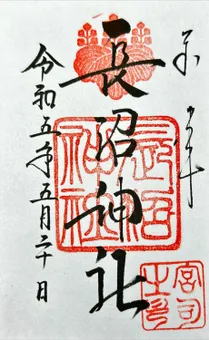 奉拝
長沼神社
令和五年五月二十日
長沼
神社
宮司
之印